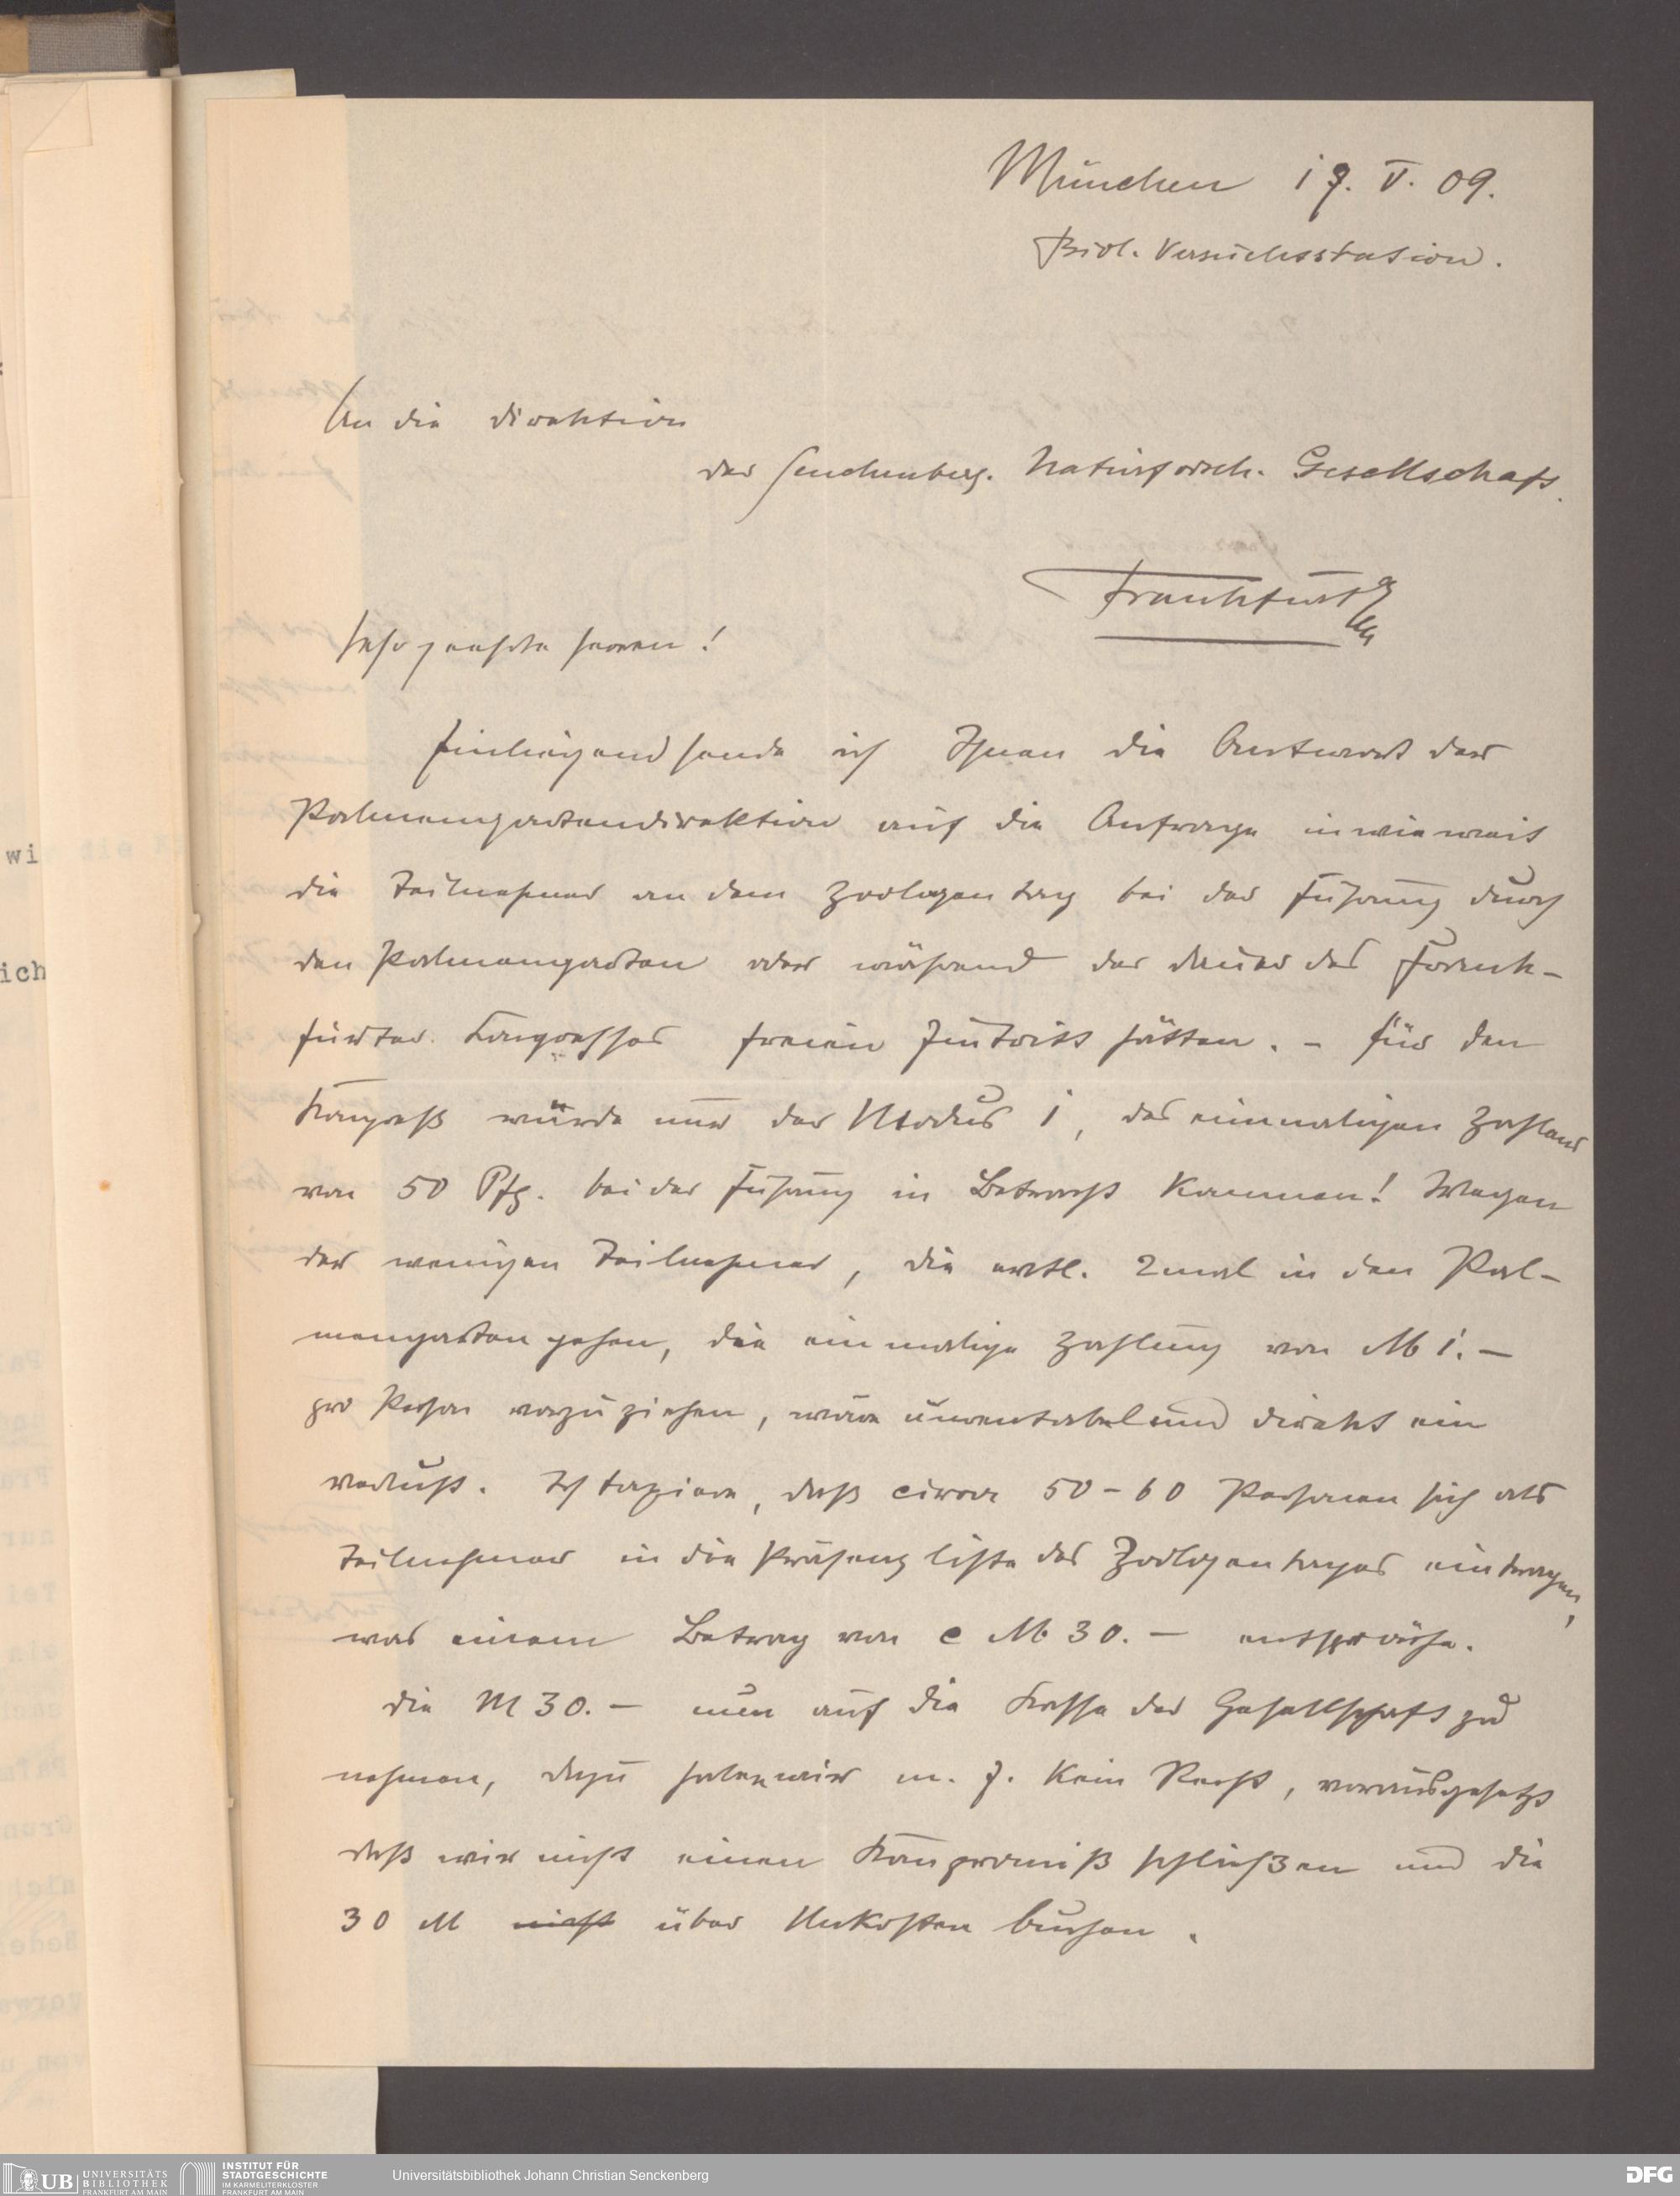 München 17. V. 09.
Biol. Versuchsstation.
An die Direktion
der Senckenberg. Naturforsch. Gesellschaft.
Frankfurt
Sehr geehrte Herren!
Einliegend sende ich Ihnen die Antwort der
Palmengartendirektion auf die Anfrage inwieweit
die Teilnehmer an dem Zoologentag bei der Führung durch
den Palmengarten oder während der Dauer des Frank-
furter Kongresses freien Zutritt hätten. - Für den
Kongreß würde nur der Modus 1, des einmaligen Zahlens
von 50 Pfg. bei der Führung in Betracht kommen! Wegen
der wenigen Teilnehmer, die evtl. 2 mal in den Pal-
mengarten gehen, die einmalige Zahlung von M 1.-
pro Person vorzuziehen, wäre unrentabel und direkt ein
Verlust. Ich taxiere, daß circa 50-60 Personen sich als
Teilnehmer in die Präsenzliste des Zoologentages eintragen,
was einem Betrag von c M 30.- entspräche.
Die M 30.- nun auf die Kasse der Gesellschaft zu
nehmen, dazu haben wir m. E. kein Recht, vorausgesetzt
daß wir nicht einen Kompromiß schließen und die
30 M nicht über Unkosten buchen.
wi
ich
UB UNIVERSITÄTS
BIBLIOTHEK
FRANKFURT AM MAIN
INSTITUT FÜR
STADTGESCHICHTE
IM KARMELITERKLOSTER
FRANKFURT AM MAIN
Universitätsbibliothek Johann Christian Senckenberg
DFG